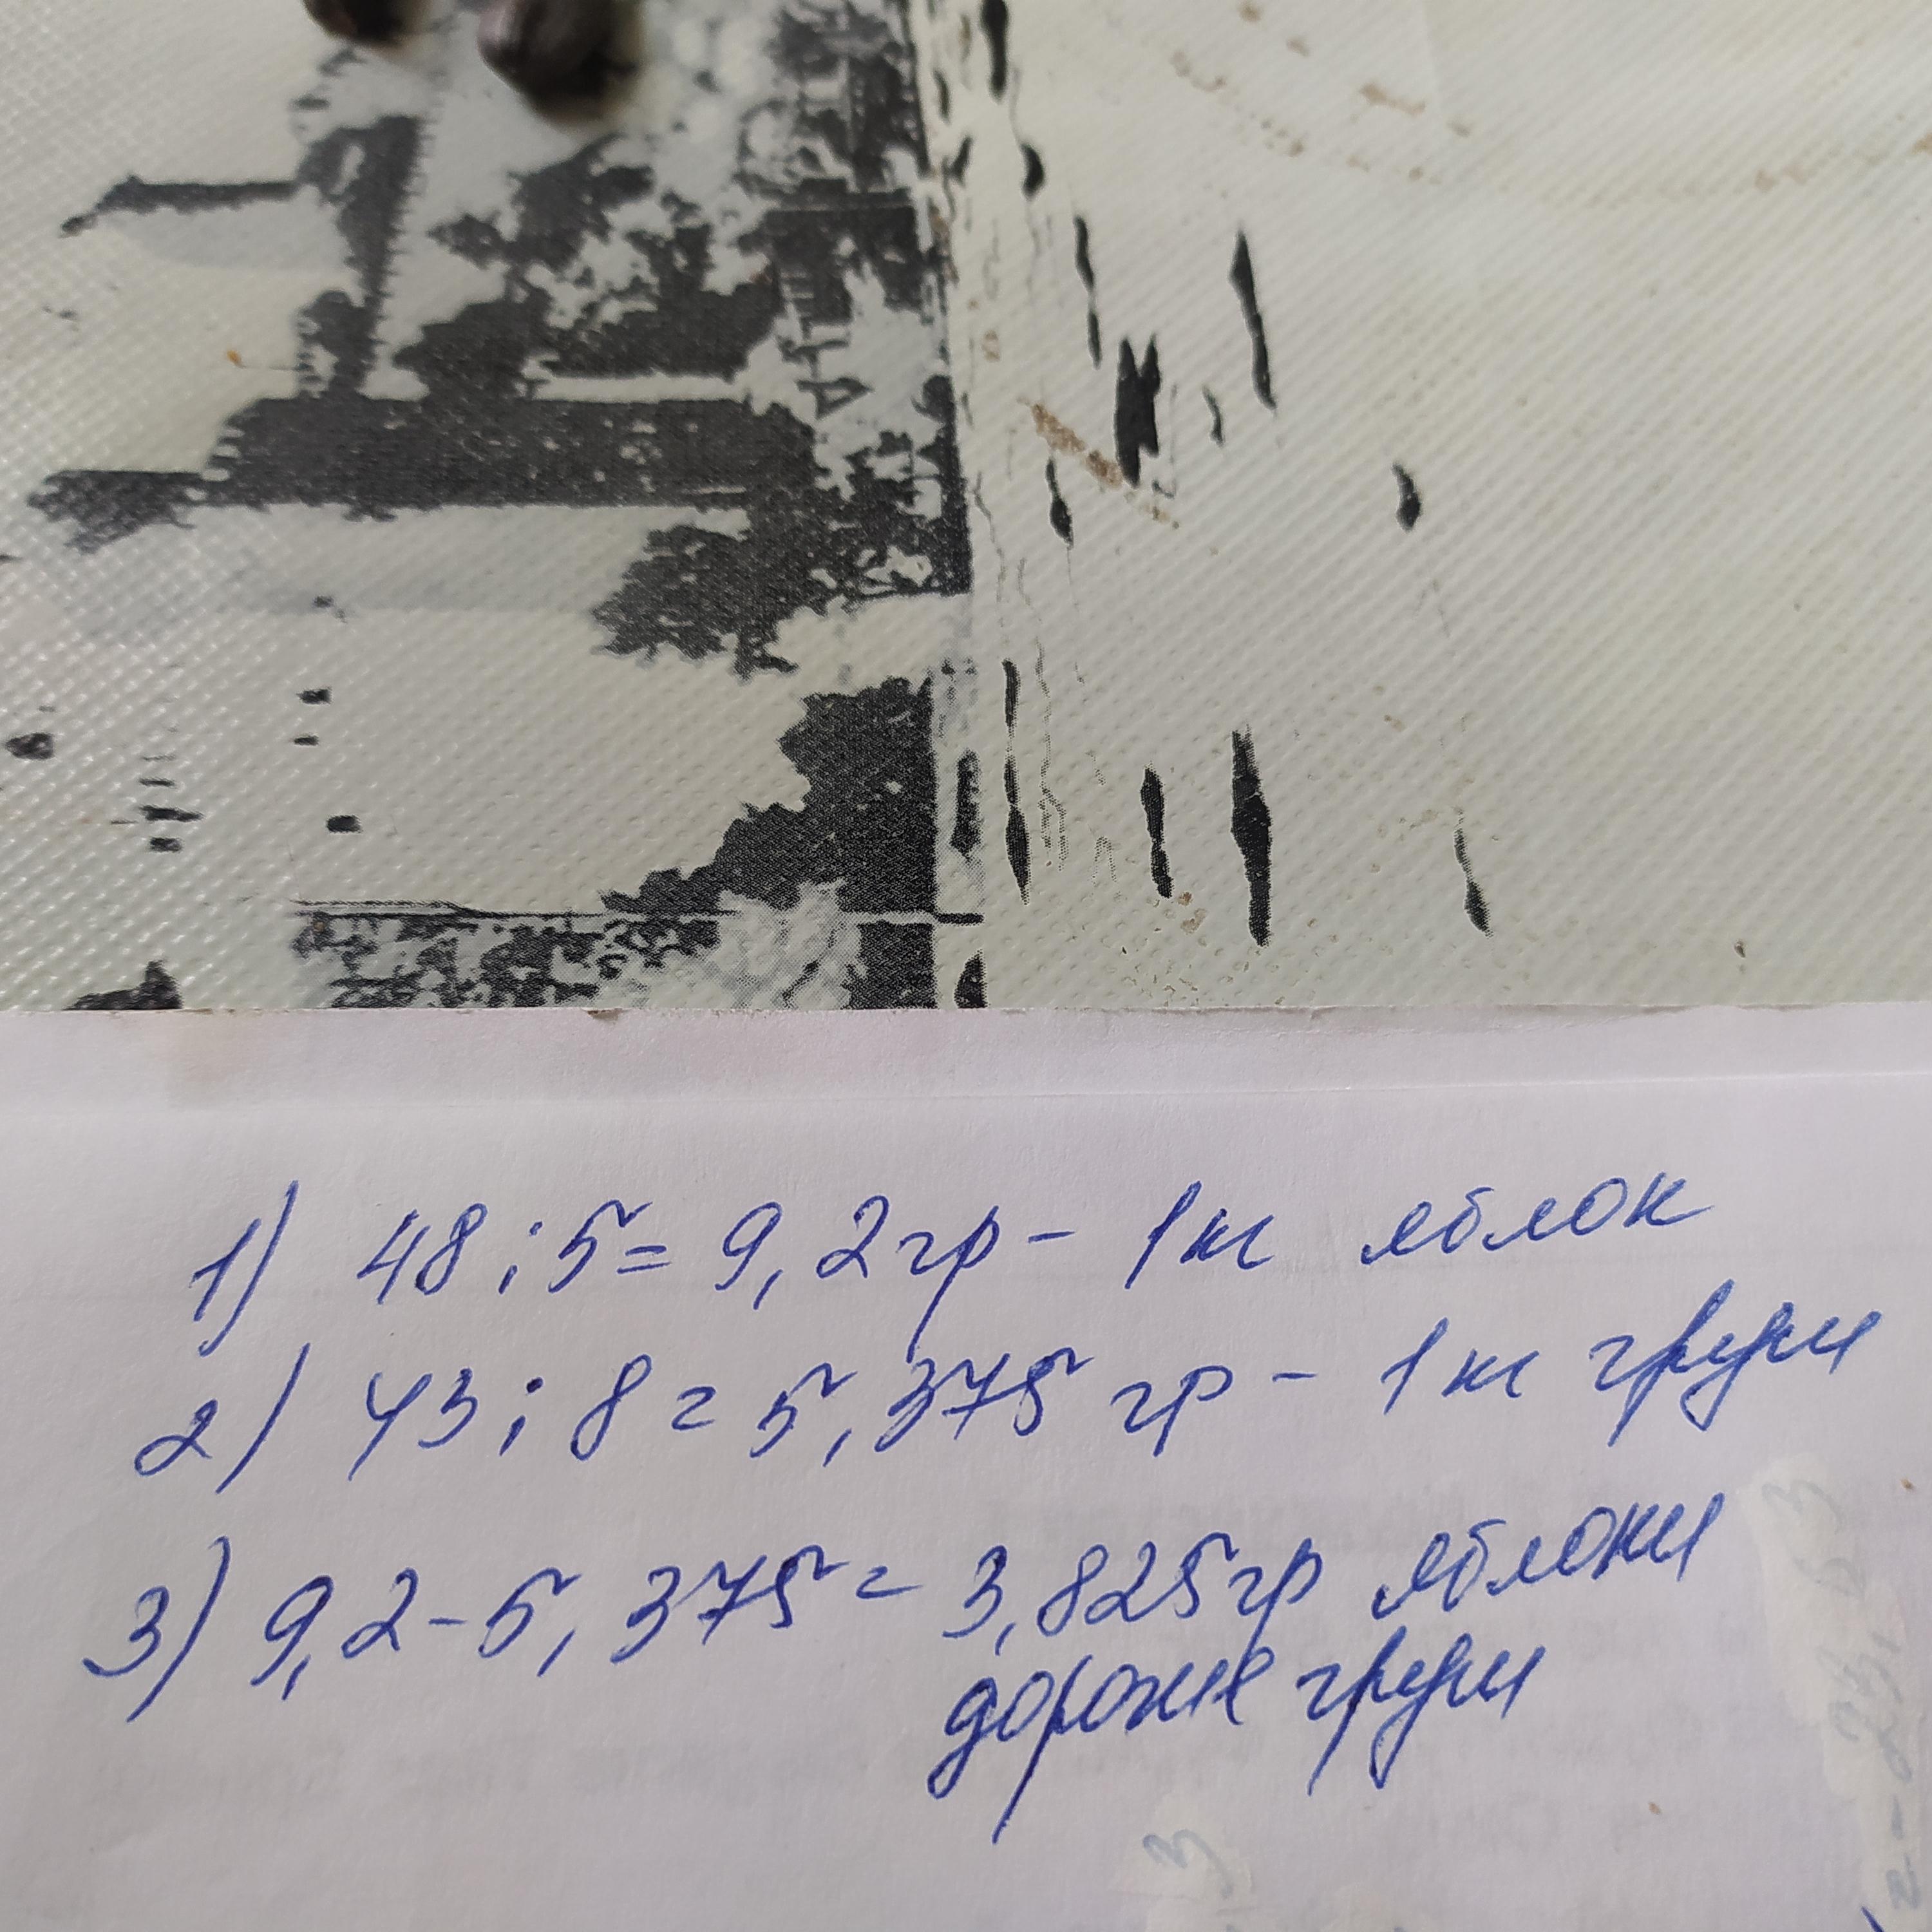 1) 48 : 5 = 9,2 гр - 1 кг яблок
2) 43 : 8 = 5,375 гр - 1 кг груш
3) 9,2 - 5,375 = 3,825 гр яблоки
дороже груш